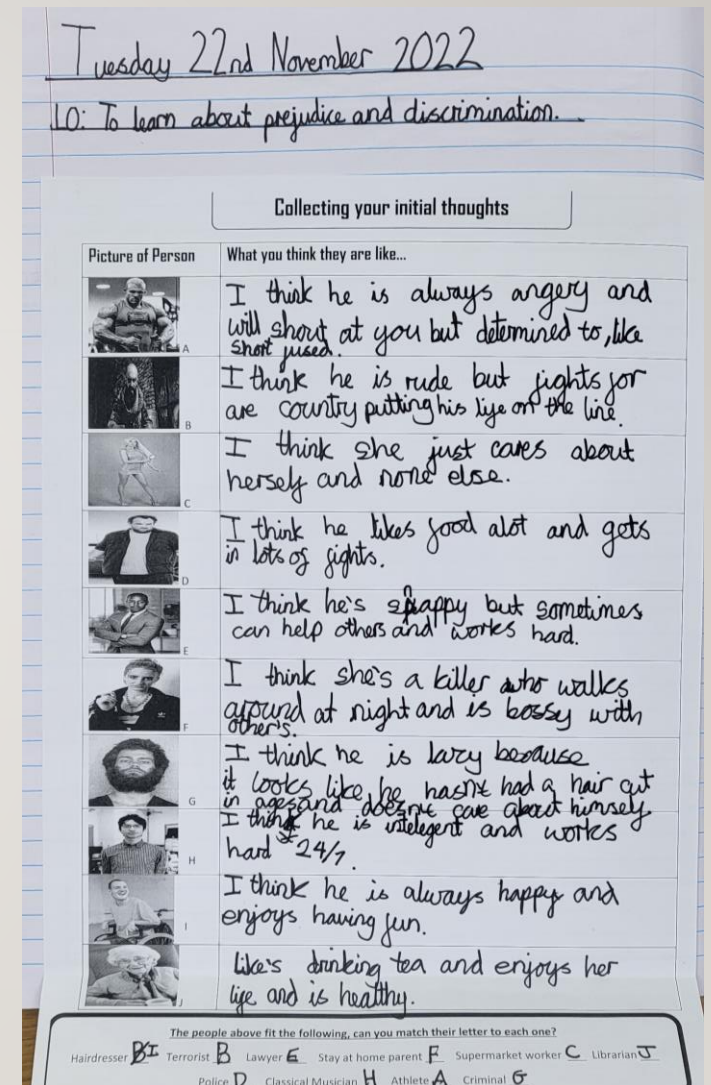 Tuesday 22nd November 2022
LO: To learn about prejudice and discrimination.
Collecting your initial thoughts
Picture of Person What you think they are like...
A
I think he is always angery and
will shout at you but determined to, like
short fused.
B
I think he is rude but fights for
are country putting his life on the line.
C
I think she just cares about
herself and none else.
D
I think he likes food alot and gets
in lots of fights.
E
I think he's snappy but sometimes
can help others and works hard.
F
I think she's a killer who walks
around at night and is bossy with
other's.
G
I think he is lazy because
it looks like he hasn't had a hair cut
in ages and doezn't care about himself
H
I think he is intelegent and works
hard 24/7.
I
I think he is always happy and
enjoys having fun.
J
Like's drinking tea and enjoys her
life and is healthy.
The people above fit the following, can you match their letter to each one?
Hairdresser I Terrorist B Lawyer E Stay at home parent F Supermarket worker C Librarian J
Police D Classical Musician H Athlete A Criminal G